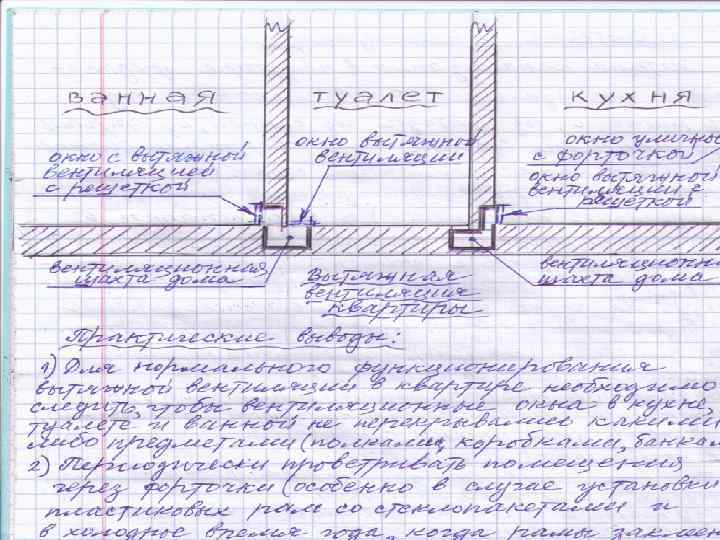 ванная туалет кухня
окно с вытяжной
вентиляцией
с решеткой
окно вытяжной
вентиляции
окно уличное
с форточкой
окно вытяжной
вентиляции с
решеткой
вентиляционная
шахта дома
Вытяжная
вентиляция
квартиры
вентиляционн
шахта дома
Практические выводы:
1) Для нормального функционирования
вытяжной вентиляции в квартире необходимо
следить, чтобы вентиляционные окна в кухне,
туалете и ванной не перекрывались какими
либо предметами (полками, коробками, банкам
2) Периодически проветривать помещения
через форточки (особенно в случае установки
пластиковых рам со стеклопакетами и
в холодное время года, когда рамы